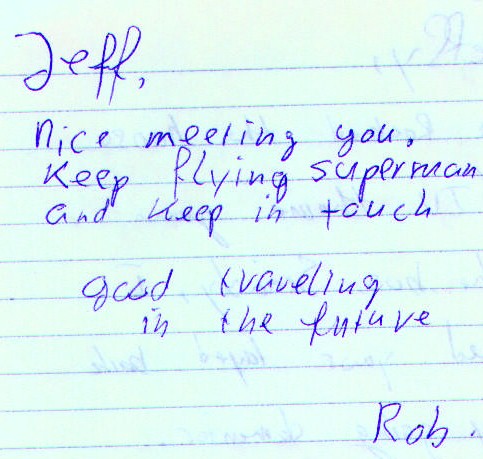 Jeff,
nice meeting you.
Keep flying superman
and keep in touch
good traveling
in the future
Rob.